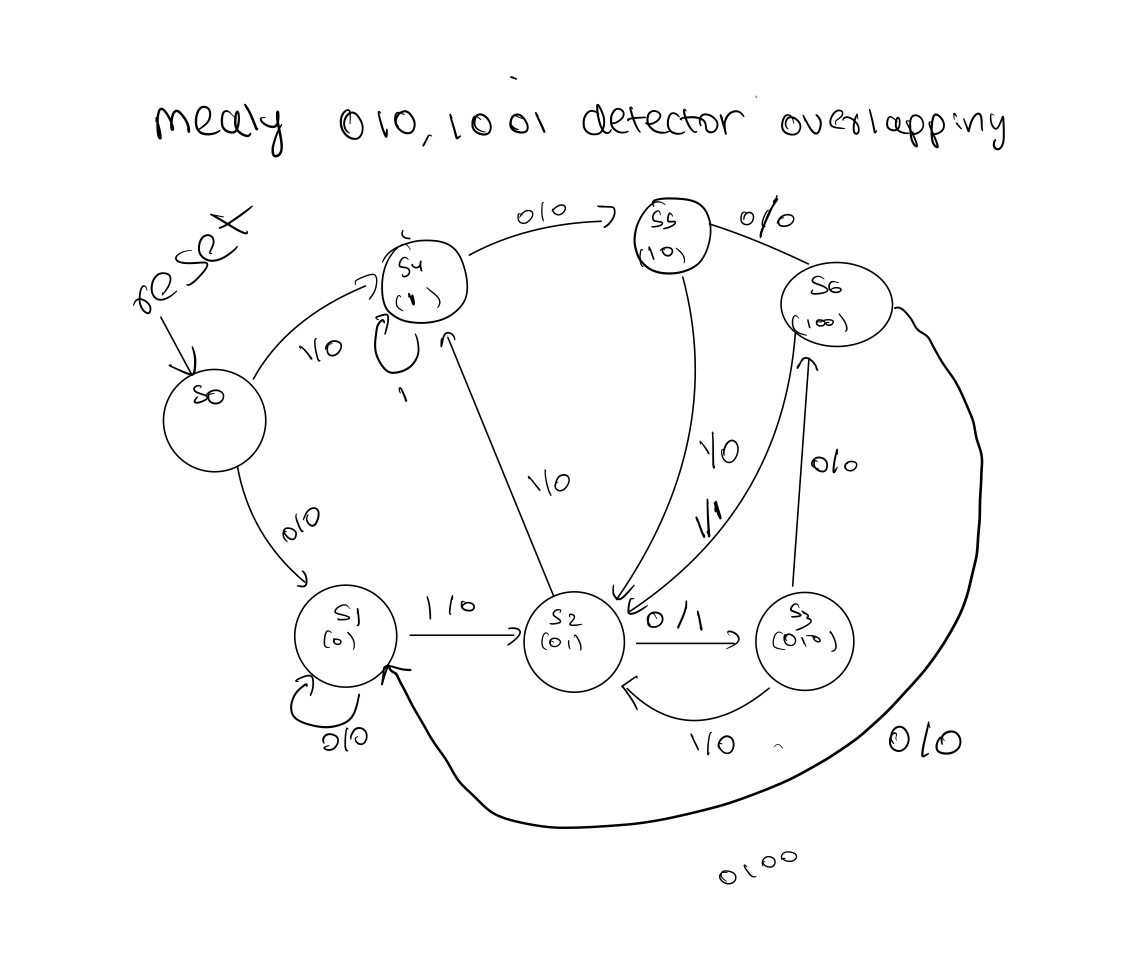 mealy 010, 1001 detector overlapping
reset
S0
1/0
0/0
S4
(1)
1
0/0
S5
(10)
0/0
S6
(100)
1/0
1/0
1/1
0/0
S1
(0)
0/0
1/0
S2
(01)
0/1
S3
(010)
1/0
0/0
0100